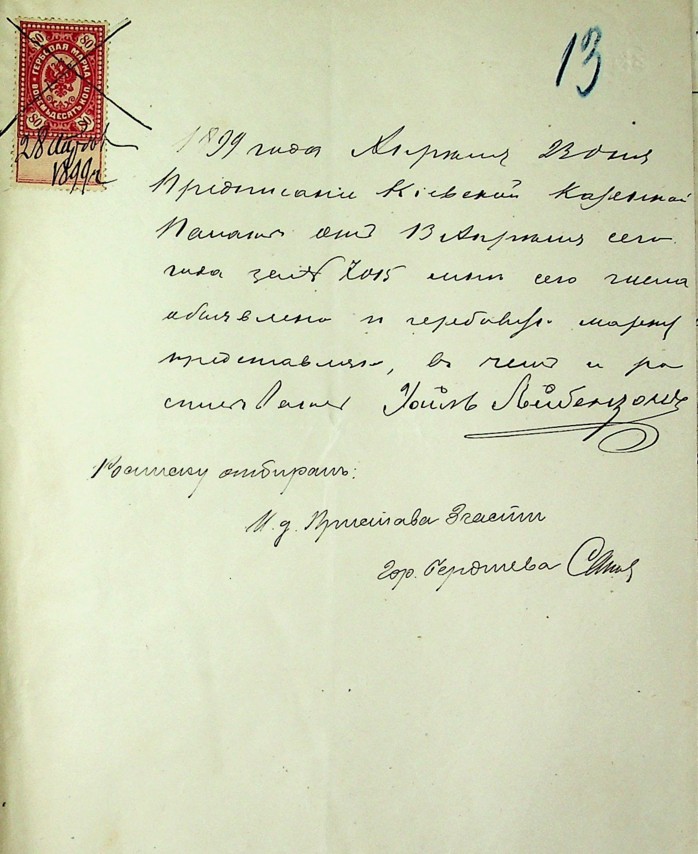 80 80
ГЕРБОВАЯ МАРКА
ВОСЕМЬДЕСЯТЪ КОП.
80 80
28
1899г
13
1899 года Апреля 23 дня
Предписаніе Кіевской Казенной
Палаты отъ 13 Апреля сего
года за № 7015 мнѣ сего числа
объявлено и гербовую марку
представляю, въ чемъ и ра
списываюсь Хаймъ Лейбензонъ
Росписку отбиралъ:
И. д. Пристава 2 части
гор. Бердичева